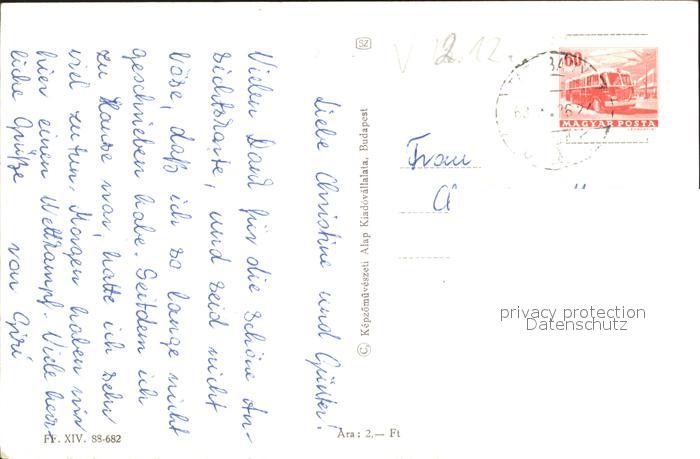 Liebe Christine und Günter!
Vielen Dank für die schöne An-
sichtskarte, und seid nicht
böse, daß ich so lange nicht
geschrieben habe. Seitdem ich
zu Hause war, hatte ich sehr
viel zu tun. Morgen haben wir
hier einen Wettkampf. Viele herz-
liche Grüße
von
FF. XIV. 88-682
Ára: 2,— Ft
© Képzőművészeti Alap Kiadóvállalata, Budapest
SZ
V 12.12.
60
MAGYAR POSTA
Frau
privacy protection
Datenschutz